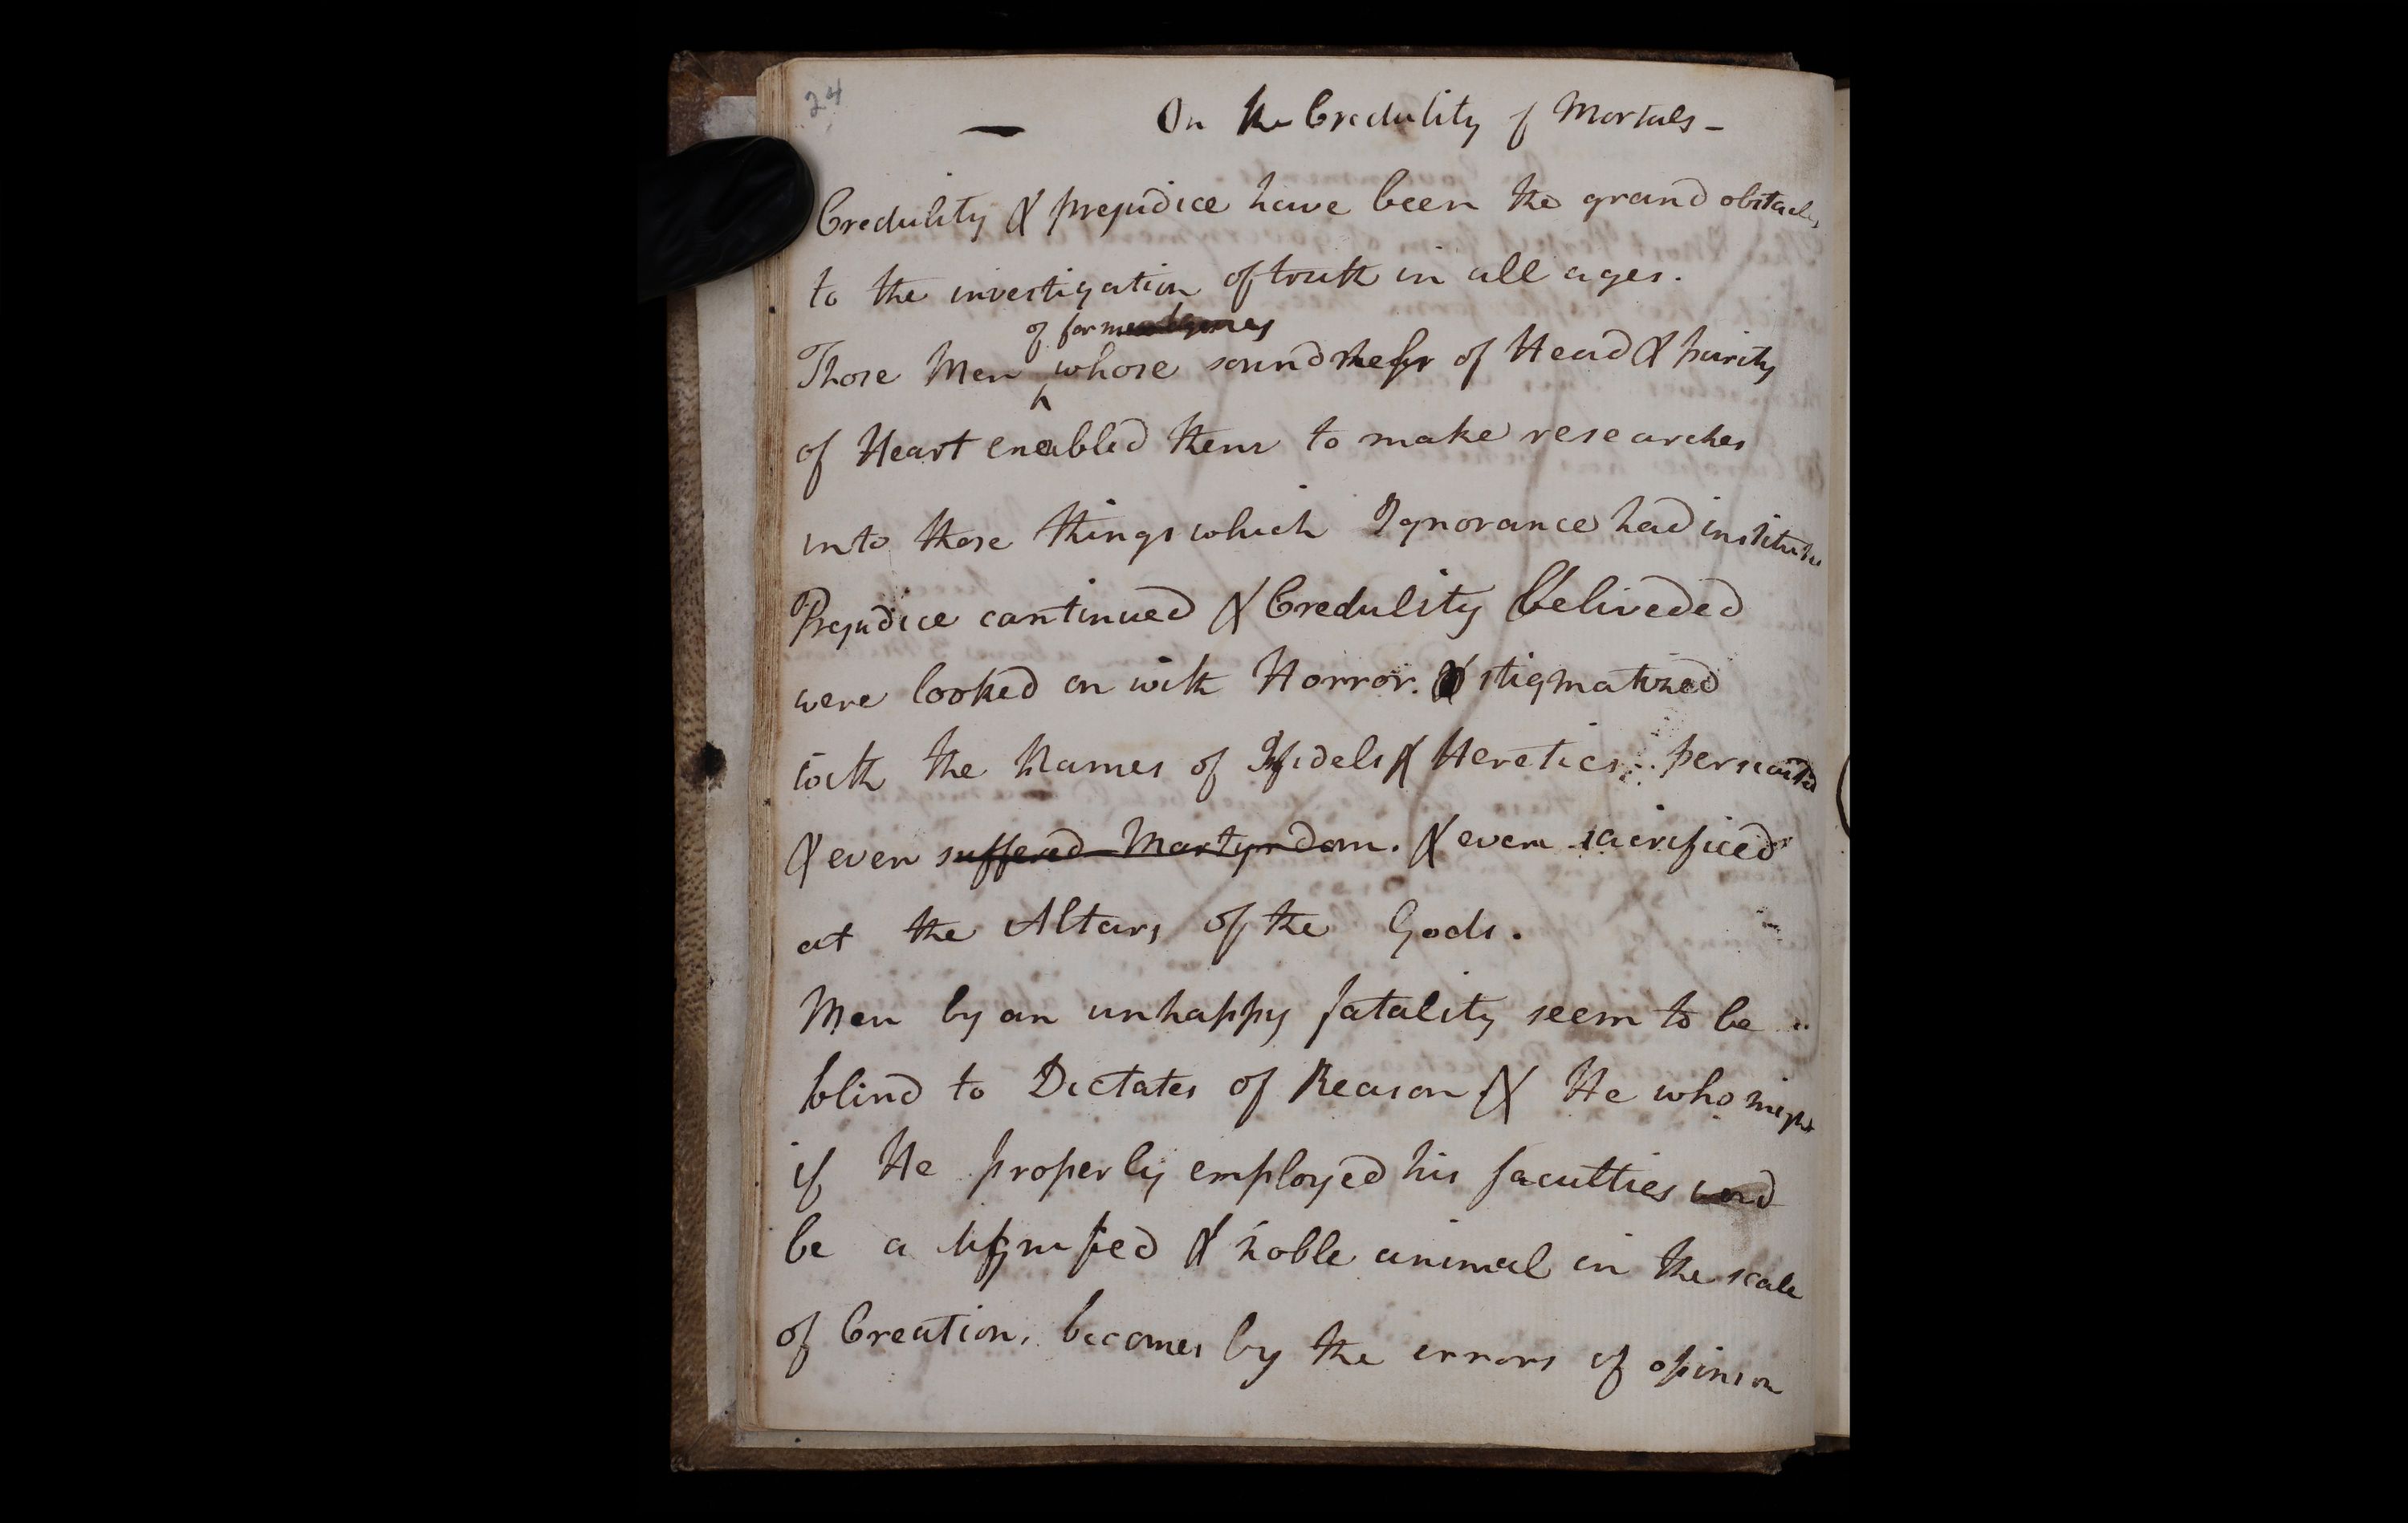 24
— On the Credulity of Mortals –
Credulity & prejudice have been the grand obstacles
to the investigation of truth in all ages.
of former
Those Men ^ whose soundness of Head & purity
of Heart enabled them to make researches
into those things which Ignorance had institute
Prejudice continued & Credulity beliveded
were looked on with Horror. & stigmatized
with the Names of Infidels & Heretics. persecuted
& even suffered Martyrdom. & even sacrificed
at the Altars of the Gods.
Men by an unhappy fatality seem to be
blind to Dictates of Reason & He who might
if He properly employed his faculties
be a & noble animal in the scale
of Creation, becomes by the errors of opinion